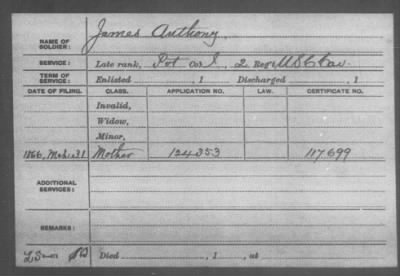 NAME OF SOLDIER: James Anthony
SERVICE: Late rank, Pvt Co. I, 2 Reg't U S C Cav.
TERM OF SERVICE: Enlisted , 1 Discharged , 1
DATE OF FILING. CLASS. APPLICATION NO. LAW. CERTIFICATE NO.
Invalid,
Widow,
Minor,
1866, Mch 31 Mother 124353 117699
ADDITIONAL SERVICES:
REMARKS:
Died , 1 , at